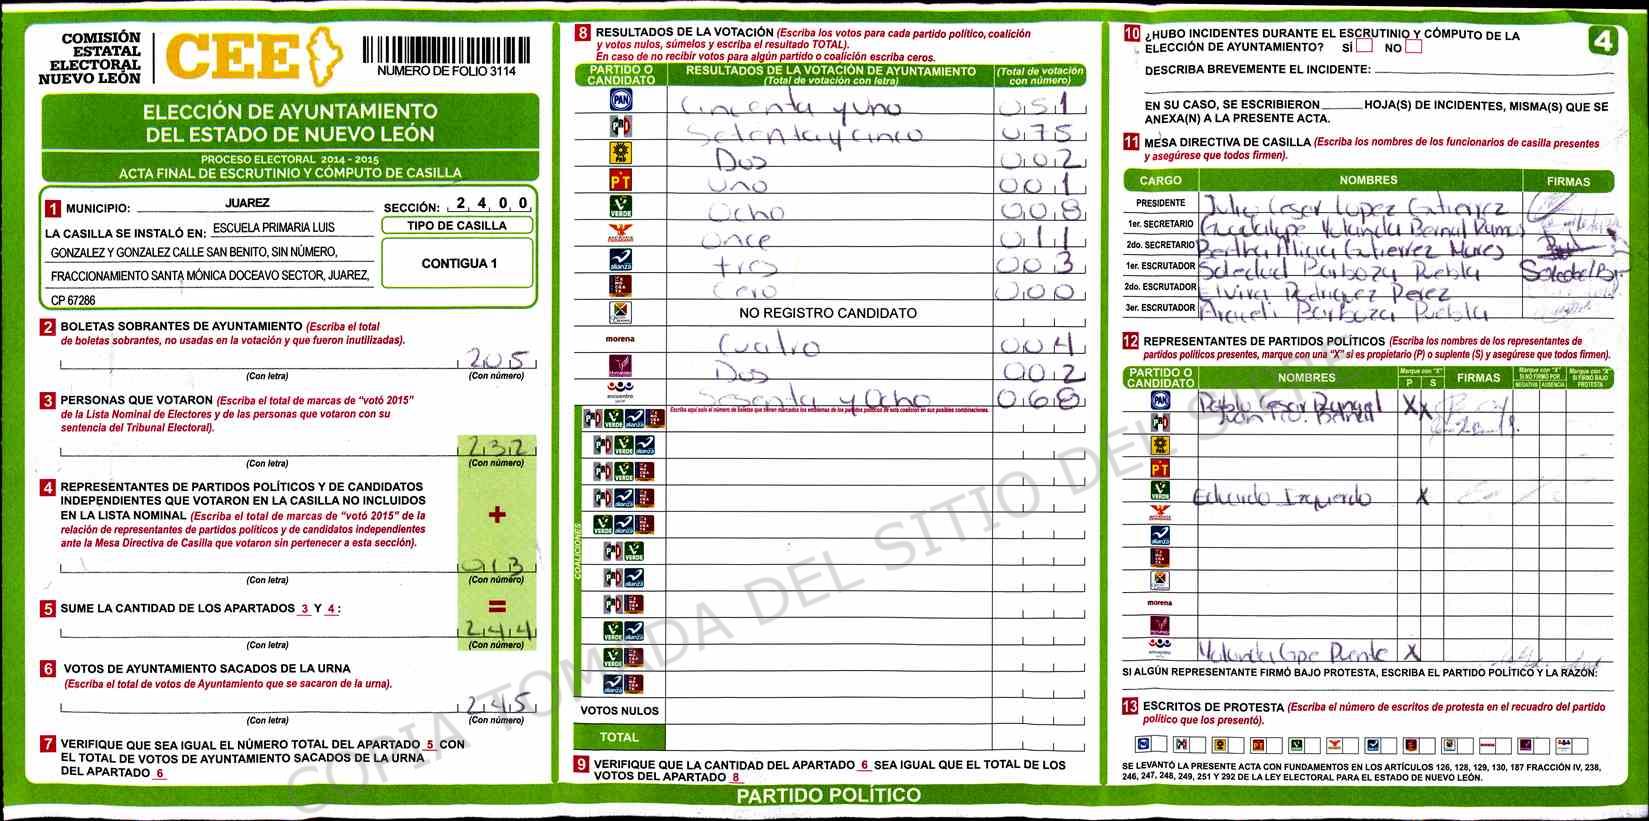 COMISIÓN
ESTATAL
ELECTORAL
NUEVO LEÓN
CEE
NUMERO DE FOLIO 3114
ELECCIÓN DE AYUNTAMIENTO
DEL ESTADO DE NUEVO LEÓN
PROCESO ELECTORAL 2014 - 2015
ACTA FINAL DE ESCRUTINIO Y CÓMPUTO DE CASILLA
1 MUNICIPIO: JUAREZ SECCIÓN: 2 4 0 0
LA CASILLA SE INSTALÓ EN: ESCUELA PRIMARIA LUIS
GONZALEZ Y GONZALEZ CALLE SAN BENITO, SIN NÚMERO,
FRACCIONAMIENTO SANTA MÓNICA DOCEAVO SECTOR, JUAREZ,
CP 67286
TIPO DE CASILLA
CONTIGUA 1
2 BOLETAS SOBRANTES DE AYUNTAMIENTO (Escriba el total
de boletas sobrantes, no usadas en la votación y que fueron inutilizadas).
205
(Con letra) (Con número)
3 PERSONAS QUE VOTARON (Escriba el total de marcas de “votó 2015”
de la Lista Nominal de Electores y de las personas que votaron con su
sentencia del Tribunal Electoral).
232
(Con letra) (Con número)
4 REPRESENTANTES DE PARTIDOS POLÍTICOS Y DE CANDIDATOS
INDEPENDIENTES QUE VOTARON EN LA CASILLA NO INCLUIDOS
EN LA LISTA NOMINAL (Escriba el total de marcas de “votó 2015” de la
relación de representantes de partidos políticos y de candidatos independientes
ante la Mesa Directiva de Casilla que votaron sin pertenecer a esta sección).
+
013
(Con letra) (Con número)
5 SUME LA CANTIDAD DE LOS APARTADOS 3 Y 4 :
=
244
(Con letra) (Con número)
6 VOTOS DE AYUNTAMIENTO SACADOS DE LA URNA
(Escriba el total de votos de Ayuntamiento que se sacaron de la urna).
245
(Con letra) (Con número)
7 VERIFIQUE QUE SEA IGUAL EL NÚMERO TOTAL DEL APARTADO 5 CON
EL TOTAL DE VOTOS DE AYUNTAMIENTO SACADOS DE LA URNA
DEL APARTADO 6
8 RESULTADOS DE LA VOTACIÓN (Escriba los votos para cada partido político, coalición
y votos nulos, súmelos y escriba el resultado TOTAL).
En caso de no recibir votos para algún partido o coalición escriba ceros.
PARTIDO O CANDIDATO
RESULTADOS DE LA VOTACIÓN DE AYUNTAMIENTO
(Total de votación con letra)
(Total de votación con número)
PAN Cincuenta y uno 051
PRD Setenta y cinco 075
PRD Dos 002
PT Uno 001
VERDE Ocho 008
Once 011
alianza tres 003
Cero 000
NO REGISTRO CANDIDATO
morena Cuatro 004
Dos 002
encuentro Sesenta y Ocho 068
Escriba aquí solo el número de boletas que tienen marcados los emblemas de los partidos políticos de esta coalición en sus posibles combinaciones.
COALICIONES
VOTOS NULOS
TOTAL
9 VERIFIQUE QUE LA CANTIDAD DEL APARTADO 6 SEA IGUAL QUE EL TOTAL DE LOS
VOTOS DEL APARTADO 8
PARTIDO POLÍTICO
10 ¿HUBO INCIDENTES DURANTE EL ESCRUTINIO Y CÓMPUTO DE LA
ELECCIÓN DE AYUNTAMIENTO? SÍ NO
4
DESCRIBA BREVEMENTE EL INCIDENTE:
EN SU CASO, SE ESCRIBIERON HOJA(S) DE INCIDENTES, MISMA(S) QUE SE
ANEXA(N) A LA PRESENTE ACTA.
11 MESA DIRECTIVA DE CASILLA (Escriba los nombres de los funcionarios de casilla presentes
y asegúrese que todos firmen).
CARGO NOMBRES FIRMAS
PRESIDENTE Julio Cesar Lopez Gutierrez
1er. SECRETARIO Guadalupe Yolanda Bernal Ramos
2do. SECRETARIO Bertha Alicia Gutierrez Mares
1er. ESCRUTADOR Soledad Barboza Puebla
2do. ESCRUTADOR Elvira Rodriguez Perez
3er. ESCRUTADOR Araceli Barboza Puebla
12 REPRESENTANTES DE PARTIDOS POLÍTICOS (Escriba los nombres de los representantes de
partidos políticos presentes, marque con una “X” si es propietario (P) o suplente (S) y asegúrese que todos firmen).
PARTIDO O CANDIDATO NOMBRES Marque con "X" P S FIRMAS Marque con "X" SI NO FIRMÓ POR NEGATIVA AUSENCIA Marque con "X" SI FIRMÓ BAJO PROTESTA
PAN Pablo Cesar Rangel X
X
VERDE Eduardo Izquierdo X
morena
Yolanda Lope Puente X
SI ALGÚN REPRESENTANTE FIRMÓ BAJO PROTESTA, ESCRIBA EL PARTIDO POLÍTICO Y LA RAZÓN:
13 ESCRITOS DE PROTESTA (Escriba el número de escritos de protesta en el recuadro del partido
político que los presentó).
SE LEVANTÓ LA PRESENTE ACTA CON FUNDAMENTOS EN LOS ARTÍCULOS 126, 128, 129, 130, 187 FRACCIÓN IV, 238,
246, 247, 248, 249, 251 Y 292 DE LA LEY ELECTORAL PARA EL ESTADO DE NUEVO LEÓN.
COPIA TOMADA DEL SITIO DEL SIPRE